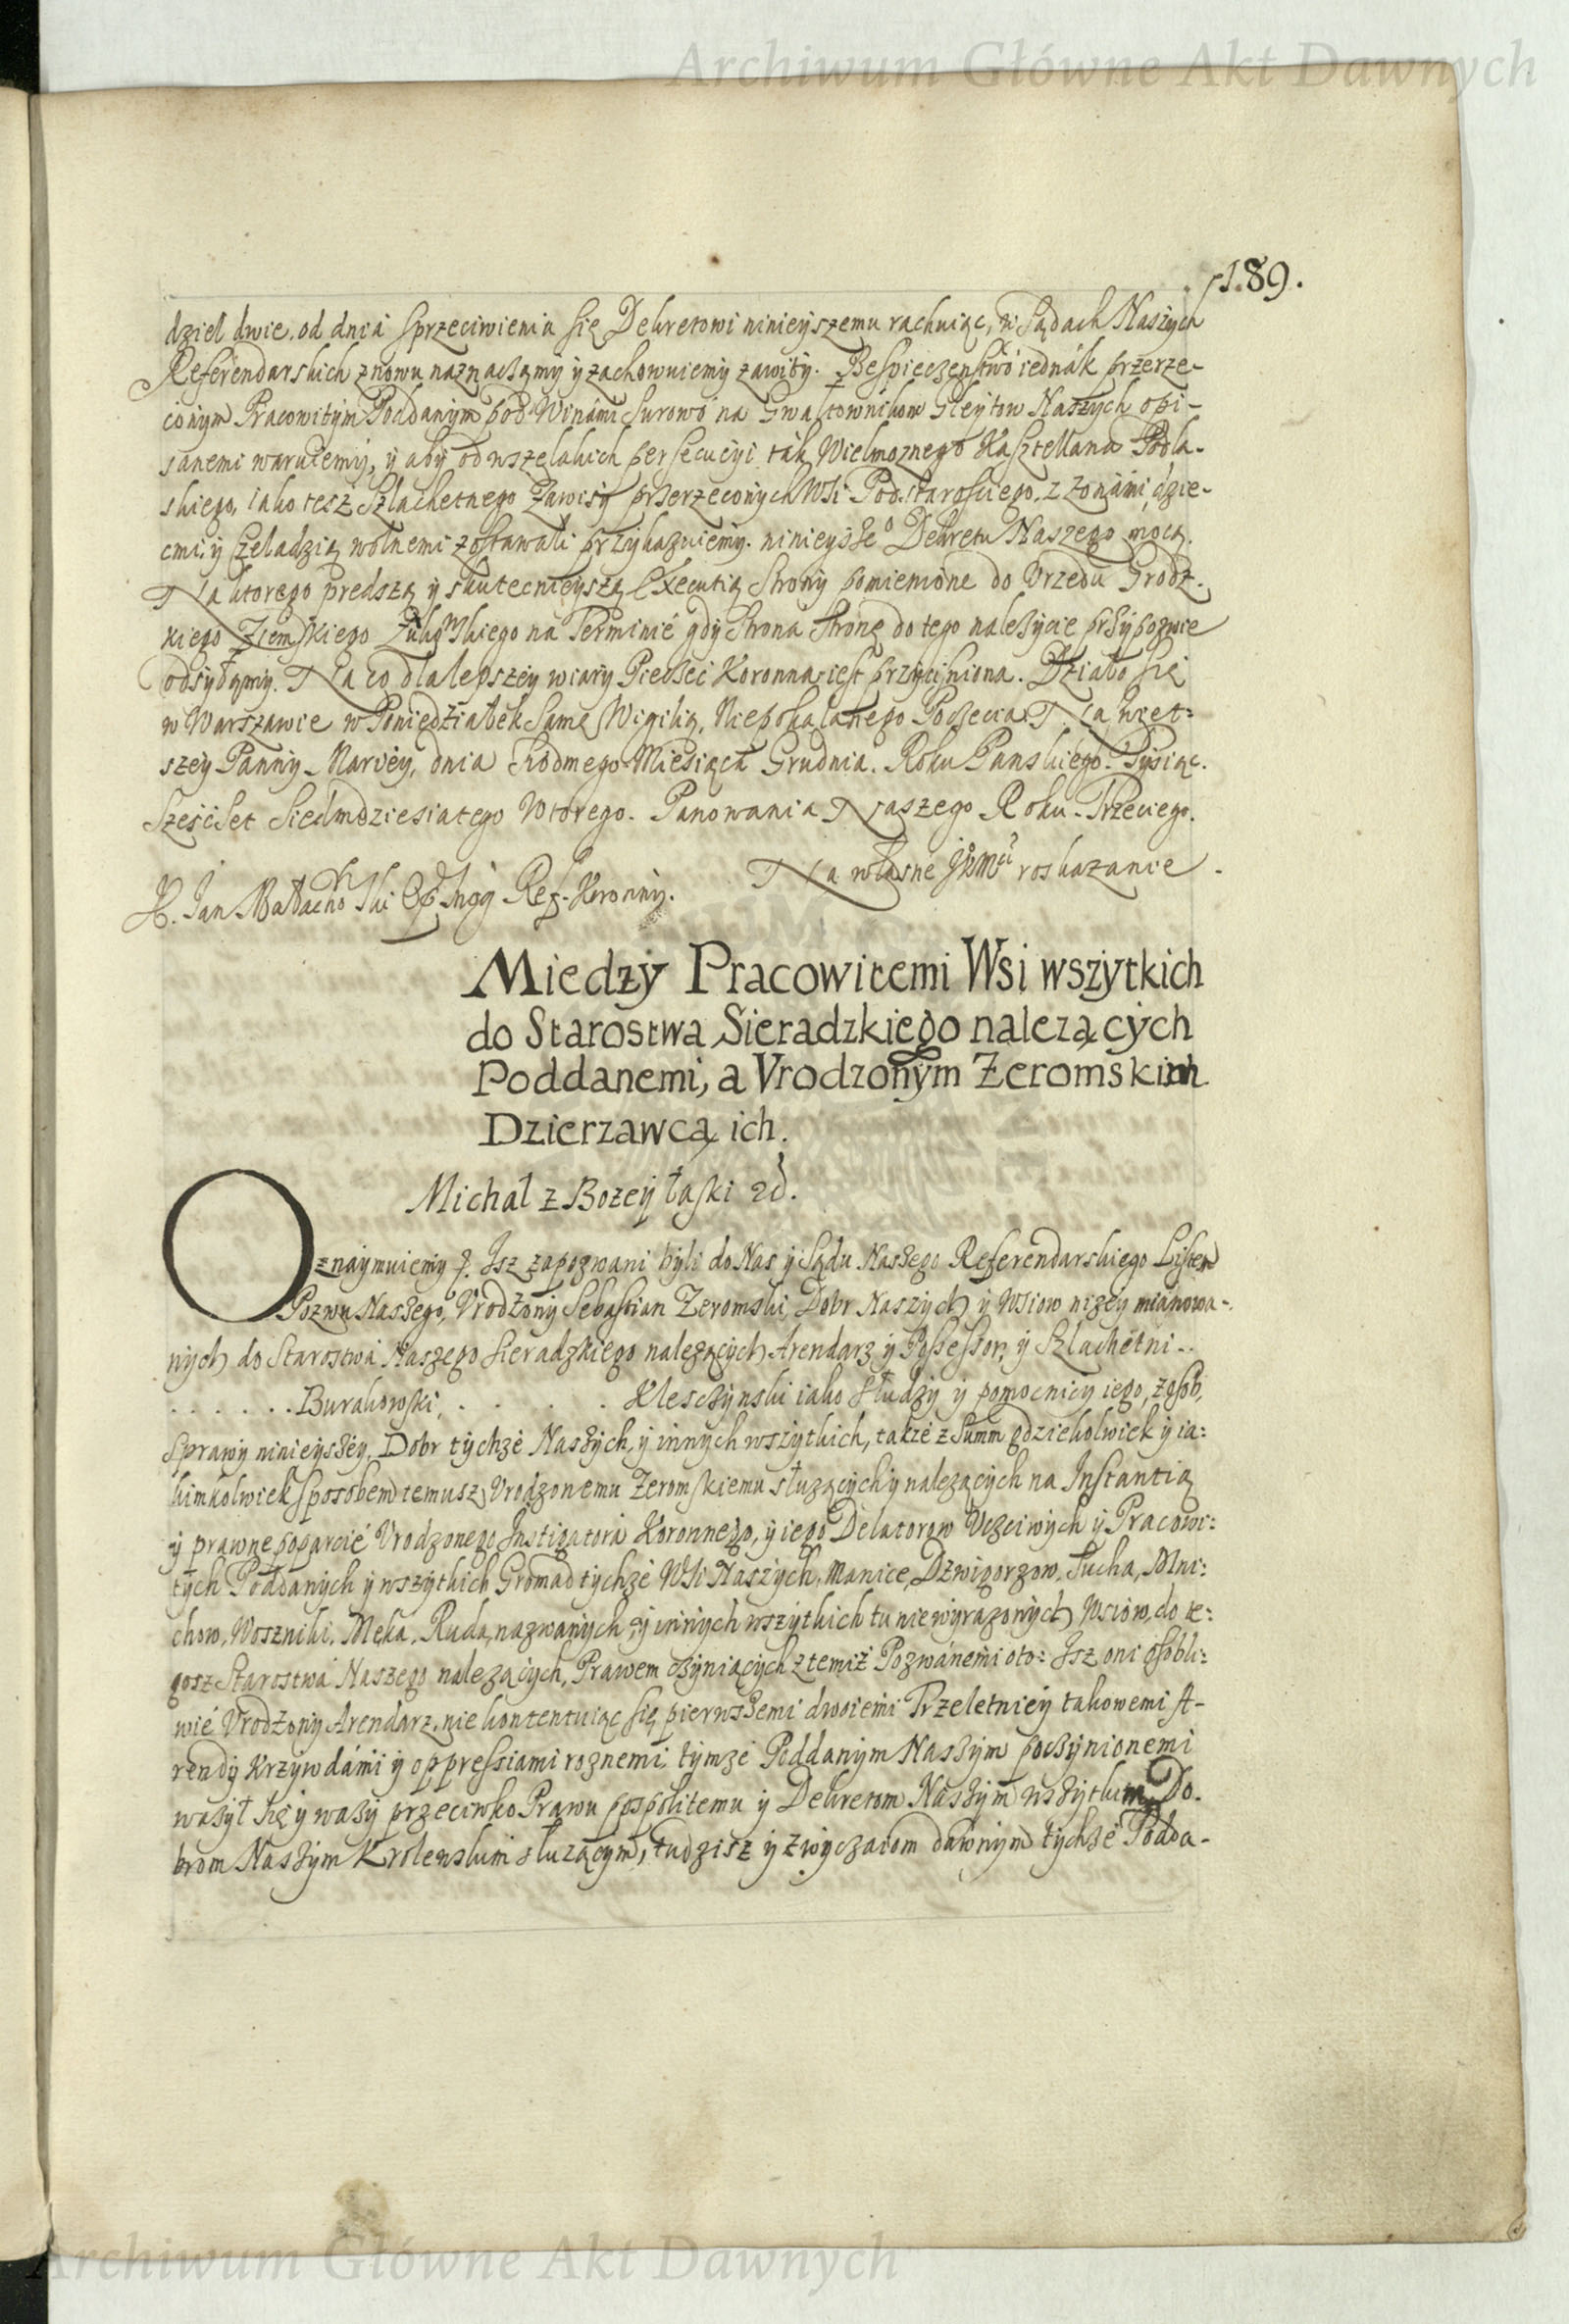 Archiwum Główne Akt Dawnych
189.
dziel dwie. od dnia sprzeciwienia się Dekretowi ninieyszemu rachuiąc, w Sądach Naszych
Referendarskich znowu naznaczamy y zachowuiemy zawity. Bespieczenstwo iednák przerze-
conym Pracowitym Poddanym pod Winámi surowo na Gwałtownikow Gleytow Naszych opi-
sanemi waruiemy, y aby od wszelakich persecucyi ták Wielmoznego Kasztellana Podla-
skiego, iako tesz Szlachetnego Zawisy przerzeconych Wsi Podstarosciego, z zonámi, dzie-
cmi, y czeladzią wolnemi zostawali przykazuiemy. ninieysze° Dekretu Naszego mocą.
Na ktorego predszą y skutecznieyszą Executią Strony pomienione do Vrzędu Grodz-
kiego Ziemskiego na Terminie gdy Strona Stronę do tego nalezycie przypozwie
odsyłamy. Na co dla lepszey wiary Pieczęć Koronna iest przyciśniona. Działo się
w Warszawie w Poniedziałek Samę Wigilią, Niepokalanego Poczęcia Naświet-
szey Panny Maryey, dnia Siodmego Miesiąca Grudnia. Roku Panskiego. Tysiąc.
Sześćset Siedmdziesiatego Wtorego. Panowania Naszego Roku Trzeciego.
X. Jan Małachowski Ref. Koronny. Na własne roskazanie.
Miedzy Pracowitemi Wsi wszytkich
do Starostwa Sieradzkiego nalezących
Poddanemi, a Vrodzonym Zeromskim
Dzierzawcą ich.
Michał z Bozey łaski
Oznaymuiemy Isz zapozwani byli do Nas y Sądu Naszego Referendarskiego Listem
Pozwu Naszego, Vrodzony Sebastian Zeromski, Dobr Naszych y Wsiow nizey mianowa-
nych do Starostwa Naszego Sieradzkiego nalezących Arendarz y Possessor, y Szlachetni..
. . . . . . Burakowski, . . . . . Kleszczynski iako słudzy y pomocnicy iego, z osob,
sprawy ninieyszey, Dobr tychze Naszych, y innych wszytkich, takze z Summ gdziekolwiek y ia:
kimkolwiek sposobem temusz Vrodzonemu Zeromskiemu słuzących y nalezących na Instantią
y prawne poparcié Vrodzonego Instigatora Koronnego, y iego Delatorow Vczciwych y Pracowi:
tych Poddanych y wszytkich Gromad tychze Wsi Naszych, Manice, Dzwigorzow, Sucha, Mni:
chow, Wozniki, Męka, Ruda, nazwanych, y innych wszytkich tu niewyrazonych Wsiow, do te:
gosz Starostwa Naszego nalezących, Prawem czyniących z temiż Pozwánemi oto: Isz oni osobli:
wié Vrodzony Arendarz, nie kontentuiąc się pierwszemi dwoiemi Trzeletniey takowemi A-
rendy Krzywdámi y oppressiami roznemi, tymze Poddanym Naszym poczynionemi
wazył się y wazy przeciwko Prawu pospolitemu y Dekretom Naszym wszytkim Do-
brom Naszym Krolewskim słuzącym, tudzisz y zwyczaiom dawnym tychze Podda-
Archiwum Główne Akt Dawnych